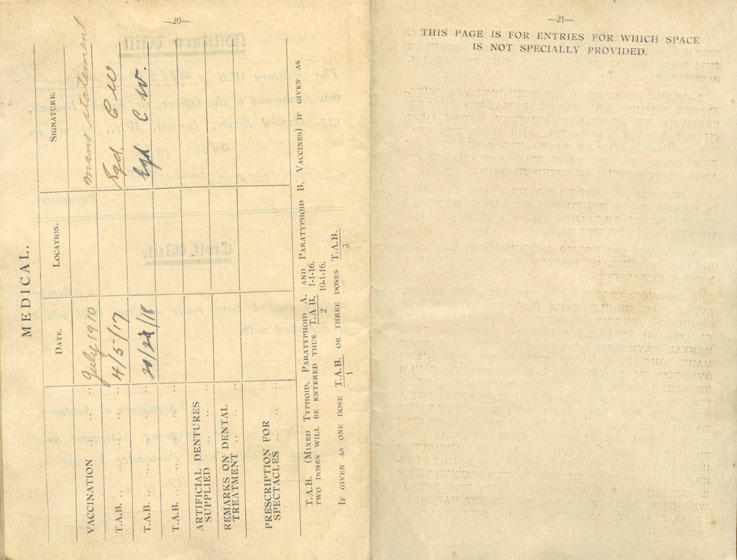 —20—
MEDICAL.
DATE. LOCATION. SIGNATURE.
VACCINATION .. July 1910 mans statement
T.A.B. .. .. 4/5/17 Sgd C W
T.A.B. .. .. Sgd C.W.
T.A.B. .. ..
ARTIFICIAL DENTURES
SUPPLIED .. ..
REMARKS ON DENTAL
TREATMENT .. ..
PRESCRIPTION FOR
SPECTACLES .. ..
T.A.B. (MIXED TYPHOID, PARATYPHOID A, AND PARATYPHOID B, VACCINES) IF GIVEN AS
TWO DOSES WILL BE ENTERED THUS T.A.B. 1-1-16.
2 10-1-16.
IF GIVEN AS ONE DOSE T.A.B. OR THREE DOSES T.A.B.
1 3
—21—
THIS PAGE IS FOR ENTRIES FOR WHICH SPACE
IS NOT SPECIALLY PROVIDED.